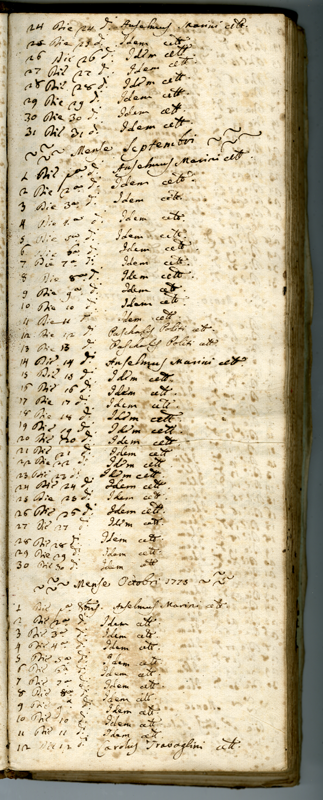 24 Die 24 d.º Anselmus Marini cel.t
25 Die 25 d.º Idem cel.t
26 Die 26 d.º Idem cel.t
27 Die 27 d.º Idem cel.t
28 Die 28 d.º Idem cel.t
29 Die 29 d.º Idem cel.t
30 Die 30 d.º Idem cel.t
31 Die 31 d.º Idem cel.t
Mense Septembri
1 Die p.ma d.º Anselmus Marini cel.t
2 Die 2.da d.º Idem cel.t
3 Die 3.a d.º Idem cel.t
4 Die 4.a d.º Idem cel.t
5 Die 5.a d.º Idem cel.t
6 Die 6.a d.º Idem cel.t
7 Die 7.a d.º Idem cel.t
8 Die 8.a d.º Idem cel.t
9 Die 9.a d.º Idem cel.t
10 Die 10 d.º Idem cel.t
11 Die 11 d.º Idem cel.t
12 Die 12 d.º Paschalis Politi cel.t
13 Die 13 Paschalis Politi cel.t
14 Die 14 d.º Anselmus Marini cel.t
15 Die 15 d.º Idem cel.t
16 Die 16 d.º Idem cel.t
17 Die 17 d.º Idem cel.t
18 Die 18 d.º Idem cel.t
19 Die 19 d.º Idem cel.t
20 Die 20 d.º Idem cel.t
21 Die 21 d.º Idem cel.t
22 Die 22 Idem cel.t
23 Die 23 d.º Idem cel.t
24 Die 24 d.º Idem cel.t
25 Die 25 d.º Idem cel.t
26 Die 26 d.º Idem cel.t
27 Die 27 d.º Idem cel.t
28 Die 28 d.º Idem cel.t
29 Die 29 d.º Idem cel.t
30 Die 30 d.º Idem cel.t
Mense Octobri 1773
1 Die p.ma 8bris Anselmus Marini cel.t
2 Die 2.da d.º Idem cel.t
3 Die 3.a d.º Idem cel.t
4 Die 4.a d.º Idem cel.t
5 Die 5.a d.º Idem cel.t
6 Die 6.a d.º Idem cel.t
7 Die 7.a d.º Idem cel.t
8 Die 8.a d.º Idem cel.t
9 Die 9.a d.º Idem cel.t
10 Die 10 d.º Idem cel.t
11 Die 11 d.º Idem cel.t
12 Die 12 d.º Carolus Travaglini cel.t